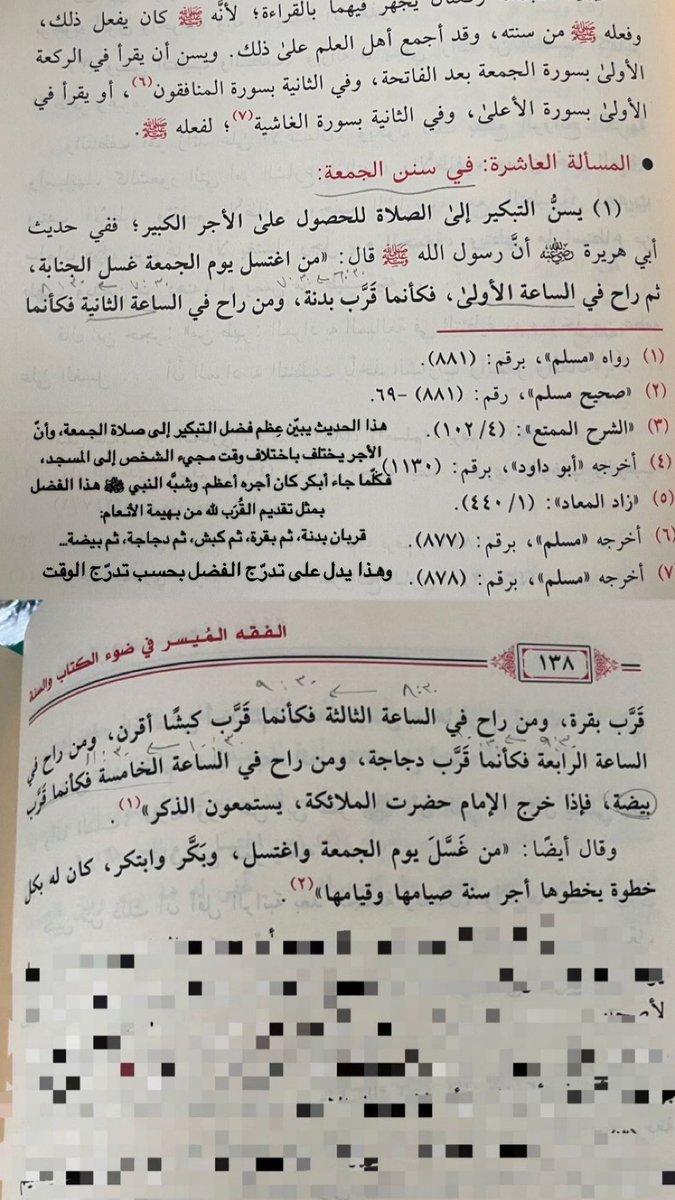 يجهر فيهما بالقراءة؛ لأنَّه ﷺ كان يفعل ذلك،
وفعله ﷺ من سنته، وقد أجمع أهل العلم علىٰ ذلك. ويسن أن يقرأ في الركعة
الأولىٰ بسورة الجمعة بعد الفاتحة، وفي الثانية بسورة المنافقون(٦)، أو يقرأ في
الأولىٰ بسورة الأعلىٰ، وفي الثانية بسورة الغاشية(٧)؛ لفعله ﷺ.
● المسألة العاشرة: في سنن الجمعة:
(١) يسنُّ التبكير إلىٰ الصلاة للحصول علىٰ الأجر الكبير؛ ففي حديث
أبي هريرة رضي الله عنه أنَّ رسول الله ﷺ قال: «من اغتسل يوم الجمعة غسل الجنابة،
٦:٣٠ ← ٧:٣٠
٧:٣٠ ← ٨:٣٠
ثم راح في الساعة الأولىٰ، فكأنما قَرَّب بدنة، ومن راح في الساعة الثانية فكأنما
(١) رواه «مسلم»، برقم: (٨٨١).
(٢) «صحيح مسلم»، رقم: (٨٨١) -٦٩.
(٣) «الشرح الممتع»: (٤/ ١٠٢).
(٤) أخرجه «أبو داود»، برقم: (١١٣٠)
(٥) «زاد المعاد»: (١/ ٤٤٠).
(٦) أخرجه «مسلم»، برقم: (٨٧٧).
(٧) أخرجه «مسلم»، برقم: (٨٧٨).
هذا الحديث يبيّن عِظم فضل التبكير إلى صلاة الجمعة، وأنّ
الأجر يختلف باختلاف وقت مجيء الشخص إلى المسجد،
فكلّما جاء أبكر كان أجره أعظم. وشبَّه النبي ﷺ هذا الفضل
بمثل تقديم القُرَب لله من بهيمة الأنعام:
قربان بدنة، ثم بقرة، ثم كبش، ثم دجاجة، ثم بيضة...
وهذا يدل على تدرّج الفضل بحسب تدرّج الوقت
الفقه المُيسر في ضوء الكتاب والسنة
١٣٨
٨:٣٠ ← ٩:٣٠
قَرَّب بقرة، ومن راح في الساعة الثالثة فكأنما قَرَّب كبشًا أقرن، ومن راح في
٩:٣٠ ← ١٠:٣٠
١٠:٣٠ ← ١١:٣٠
الساعة الرابعة فكأنما قَرَّب دجاجة، ومن راح في الساعة الخامسة فكأنما قَرَّب
بيضة، فإذا خرج الإمام حضرت الملائكة، يستمعون الذكر»(١).
وقال أيضًا: «من غَسَّلَ يوم الجمعة واغتسل، وبَكَّر وابتكر، كان له بكل
خطوة يخطوها أجر سنة صيامها وقيامها»(٢).